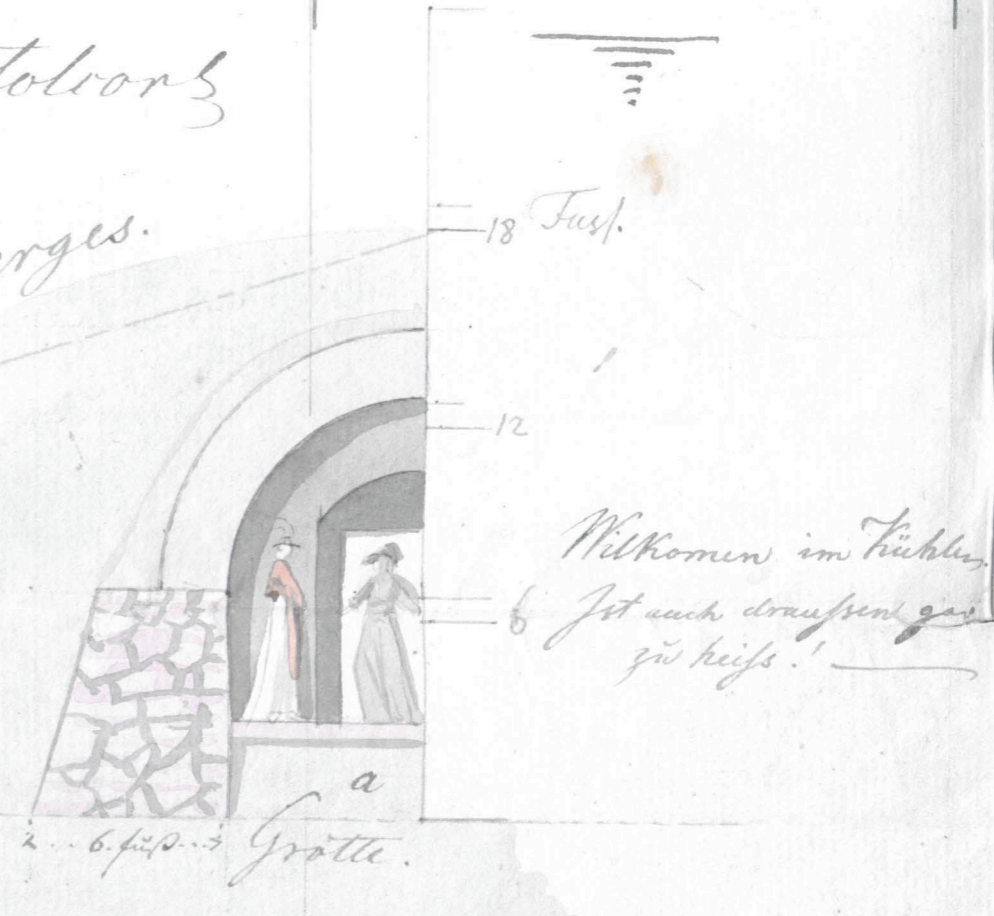 erges.
18 Fuss.
12
Wilkomen im Kühlen.
6
Ist auch draussen gar
zu heiss!
a
2. . 6. fuß. . .
Grotte.